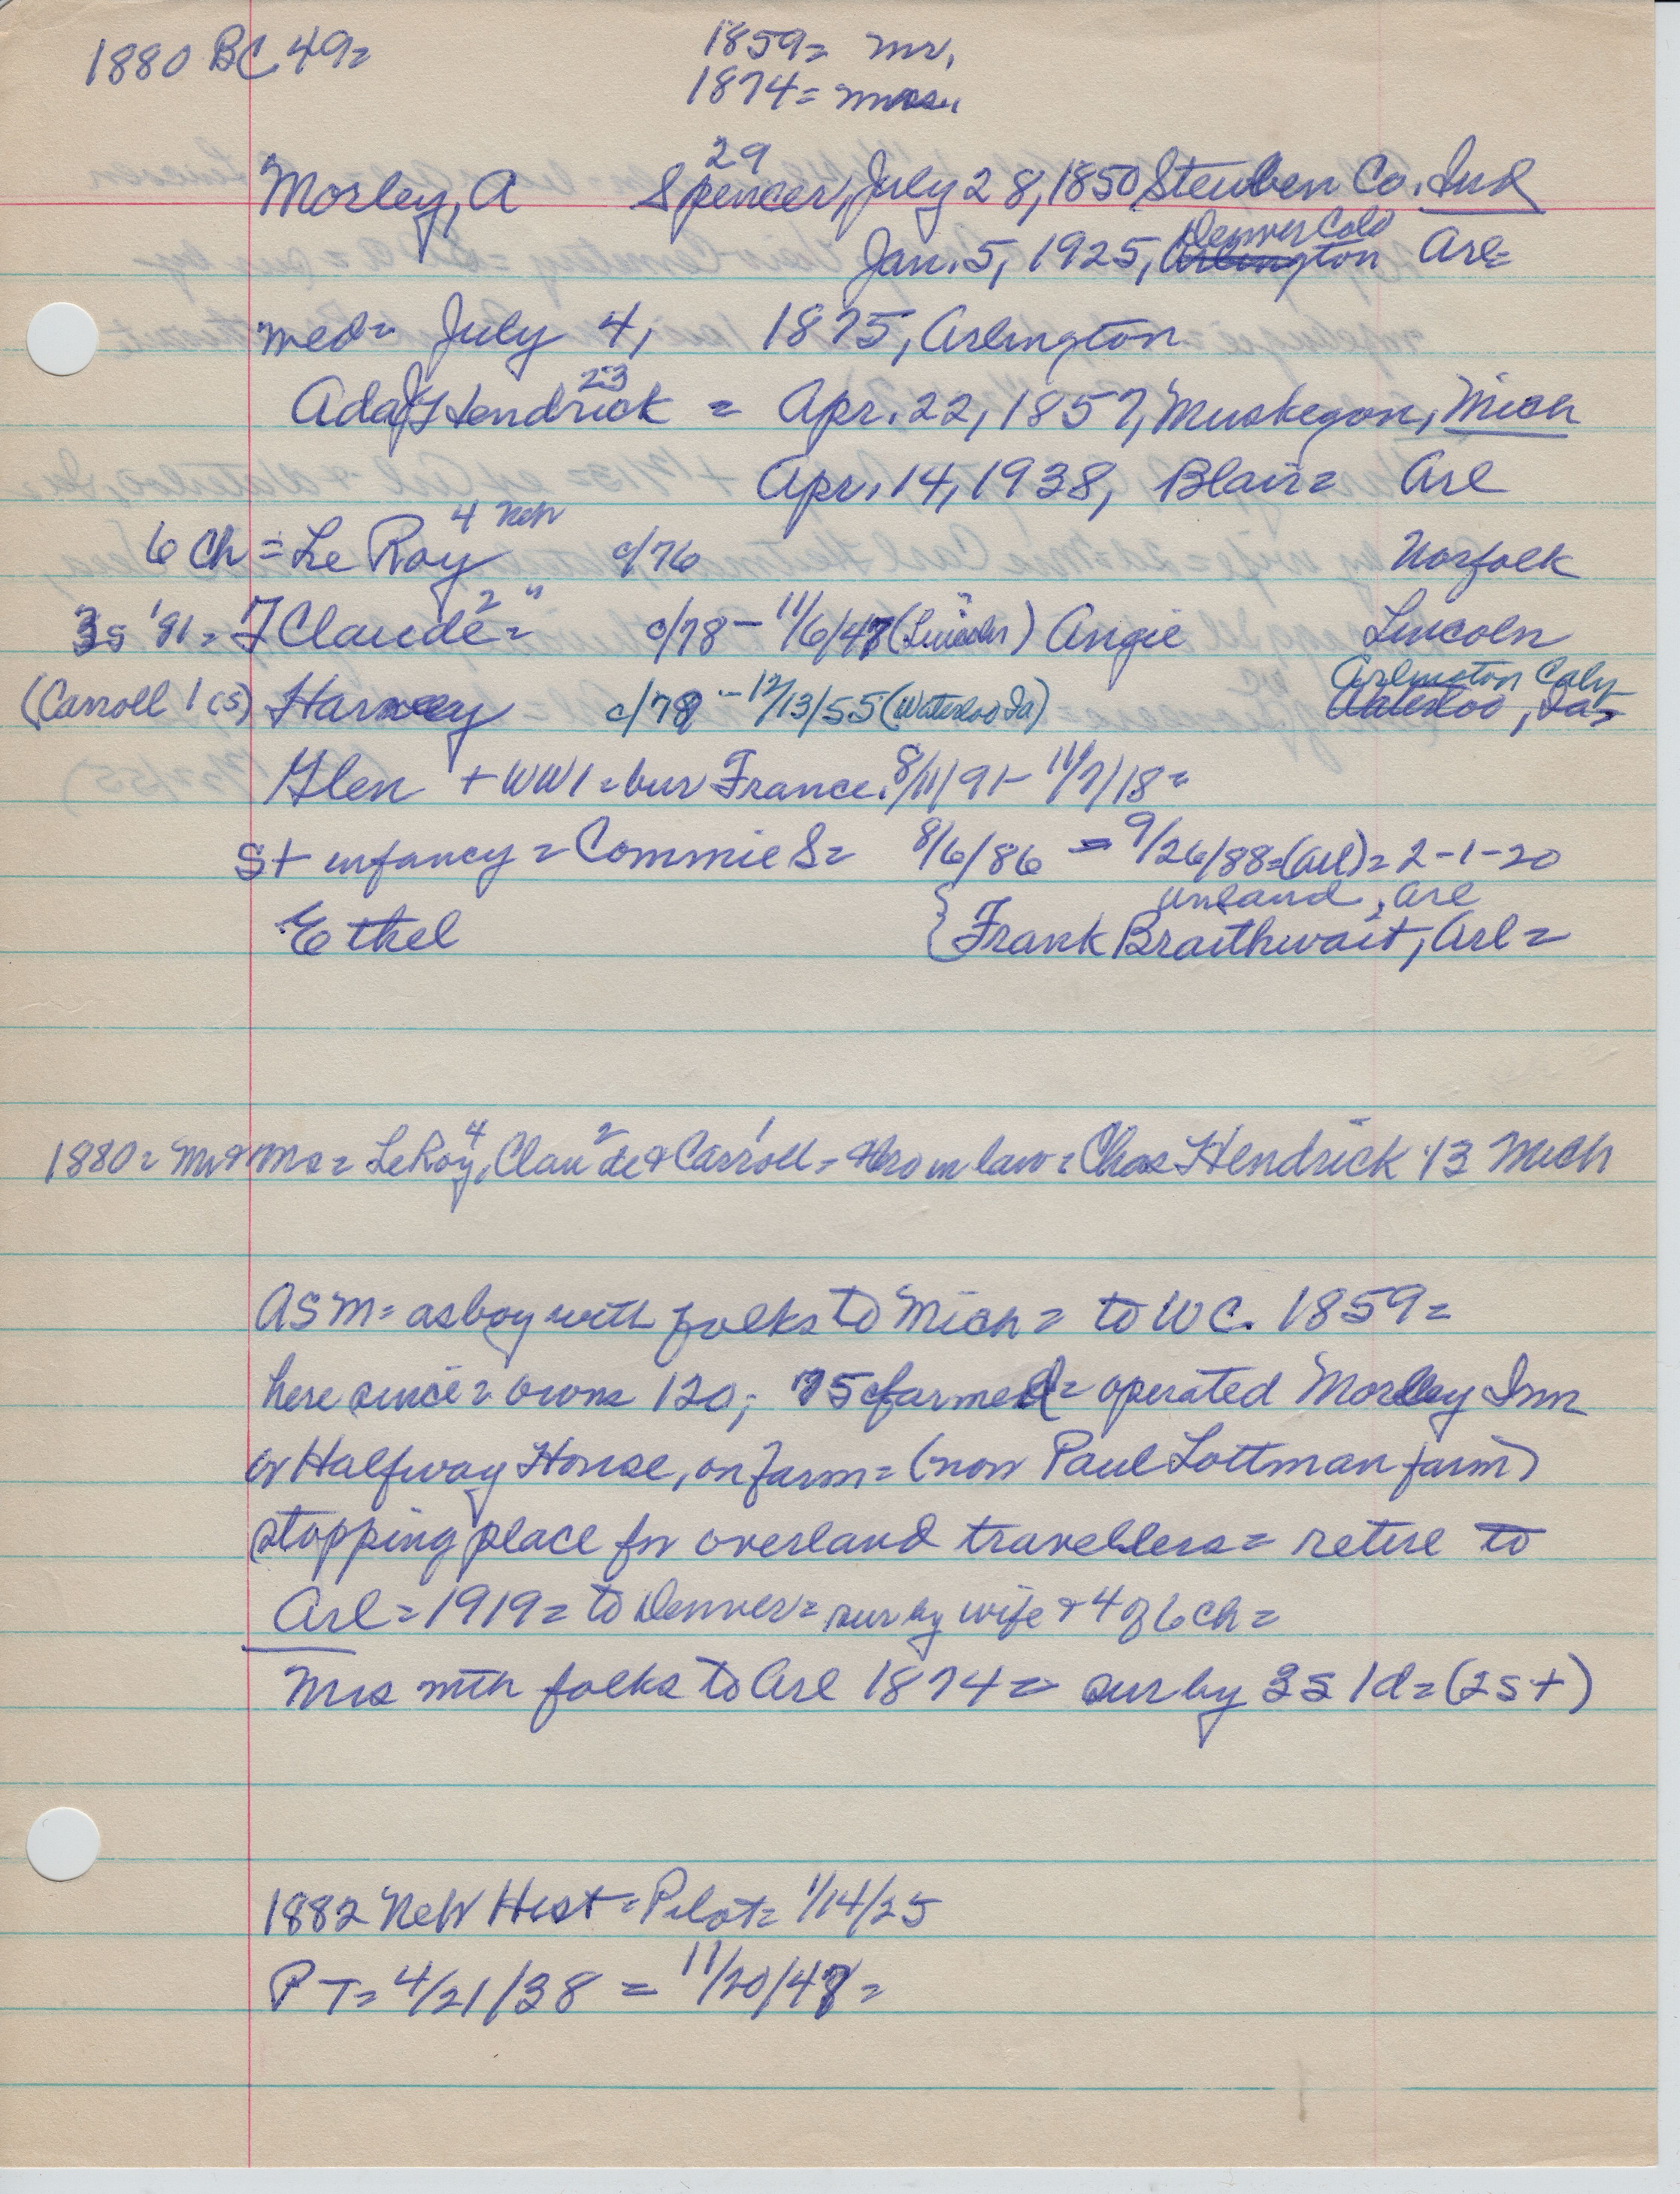 1880 BC 49=
1859= Mr.
1874= Mrs.
29
Morley, A Spencer, July 28, 1850 Steuben Co. Ind
Denver Colo
Jan. 5, 1925, Arlington Arl=
med= July 4, 1875, Arlington
23
Ada J Hendrick = Apr. 22, 1857, Muskegon, Mich
Apr. 14, 1938, Blair= Arl
6 Ch = Le Roy 4 Neb c/76 Norfolk
3s '91= F Claude 2 " = c/78 - 11/6/47 (Lincoln) Angie Lincoln
Arlington Caly
(Carroll 1 (s) Harvey c/78 - 12/13/55 (Waterloo Ia) Waterloo, Ia=
Glen + WW1 = bur France. 8/11/91 - 11/7/18=
s+ infancy = Commie S= 8/6/86 = 9/26/88=(Arl)= 2-1-20
unland, Arl
Ethel { Frank Braithwait, Arl=
1880= Mr + Mrs= LeRoy 4, Claude 2 + Carroll 1 = + bro in law= Chas Hendrick 13 Mich
ASM= as boy with folks to Mich= to WC. 1859=
here since= owns 120; 75 c farmed= operated Morley Inn
or Halfway House, on farm= (now Paul Lottman farm)
stopping place for overland travellers= retire to
Arl=1919= to Denver= sur by wife + 4 of 6 ch=
Mrs with folks to Arl 1874= sur by 3s 1d=(2s+)
1882 Neb Hist= Pilot= 1/14/25
PT= 4/21/38 = 11/20/47=